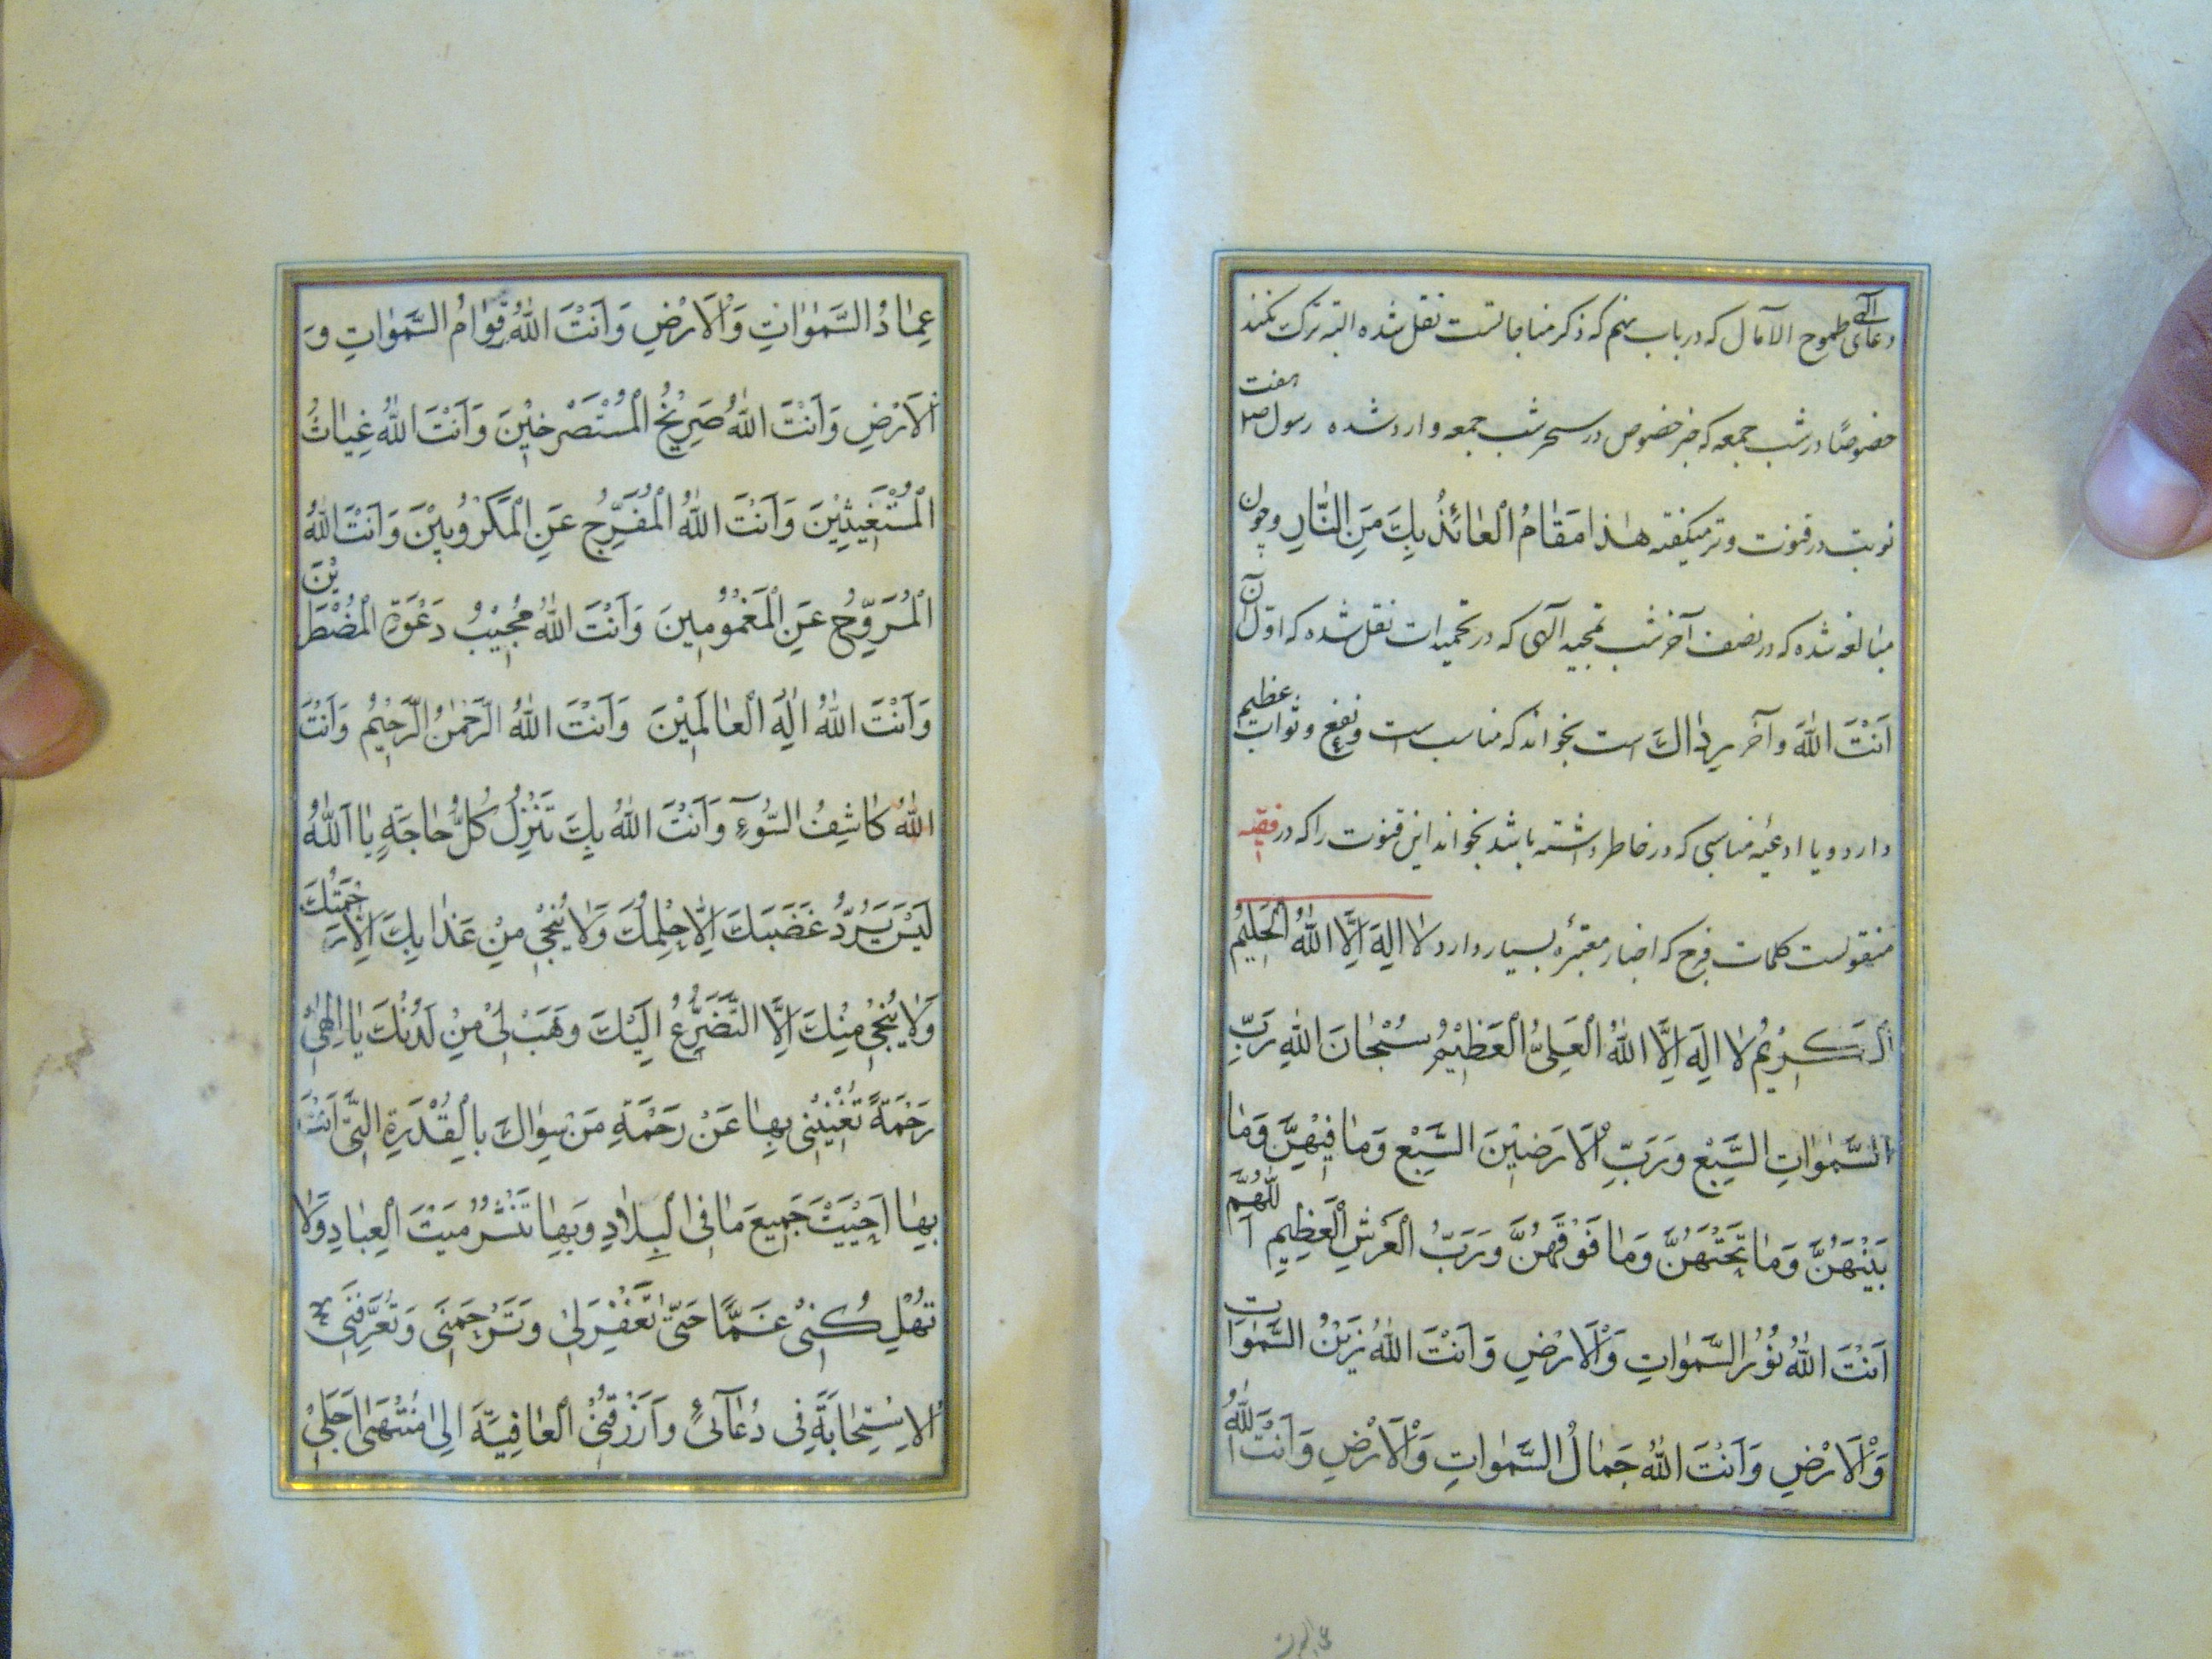 دعای الهی طموح الآمال که در باب نهم که ذکر مناجاتست نقل شده البته ترک نکنند
خصوصًا در شب جمعه که خبر خصوص در سحر شب جمعه وارد شده رسول ص هفت
نوبت در قنوت وتر میگفته هٰذا مَقٰامُ الْعٰائِذُ بِكَ مِنَ النّٰارِ وچون
مبالغه شده که در نصف آخر شب تمجید الهی که در تحمیدات نقل شده که اول آن
اَنْتَ اللّٰهَ وآخر رداك است بخواند که مناسب است ونفع وثواب عظیم
دارد ویا ادعیه مناسبی که در خاطر داشته باشد بخواند این قنوت را که در فقیه
منقولست کلمات فرج که اخبار معتبره بسیار دارد لٰا اِلٰهَ اِلَّا اللّٰهُ الْحَلِيْمُ
الْكَرِيْمُ لٰا اِلٰهَ اِلَّا اللّٰهُ الْعَلِىُّ الْعَظِيْمُ سُبْحٰانَ اللّٰهِ رَبِّ
السَّمٰوٰاتِ السَّبْعِ وَرَبِّ الْاَرَضِيْنَ السَّبْعِ وَمٰا فِيْهِنَّ وَمٰا
بَيْنَهُنَّ وَمٰا تَحْتَهُنَّ وَمٰا فَوْقَهُنَّ وَرَبُّ الْعَرْشِ الْعَظِيْمِ اَللّٰهُمَّ
اَنْتَ اللّٰهُ نُوْرُ السَّمٰوٰاتِ وَالْاَرْضِ وَاَنْتَ اللّٰهُ زَيْنُ السَّمٰوٰاتِ
وَالْاَرْضِ وَاَنْتَ اللّٰهُ جَمٰالُ السَّمٰوٰاتِ وَالْاَرْضِ وَاَنْتَ اللّٰهُ
عِمٰادُ السَّمٰوٰاتِ وَالْاَرْضِ وَاَنْتَ اللّٰهُ قِوٰامُ السَّمٰوٰاتِ وَ
الْاَرْضِ وَاَنْتَ اللّٰهُ صَرِيْخُ الْمُسْتَصْرِخِيْنَ وَاَنْتَ اللّٰهُ غِيٰاثُ
الْمُسْتَغِيْثِيْنَ وَاَنْتَ اللّٰهُ الْمُفَرِّجُ عَنِ الْمَكْرُوْبِيْنَ وَاَنْتَ اللّٰهُ
الْمُرَوِّحُ عَنِ الْمَغْمُوْمِيْنَ وَاَنْتَ اللّٰهُ مُجِيْبُ دَعْوَةِ الْمُضْطَرِّيْنَ
وَاَنْتَ اللّٰهُ اِلٰهَ الْعٰالَمِيْنَ وَاَنْتَ اللّٰهُ الرَّحْمٰنُ الرَّحِيْمُ وَاَنْتَ
اللّٰهُ كٰاشِفُ السُّوْءِ وَاَنْتَ اللّٰهُ بِكَ تَنْزِلُ كُلُّ حٰاجَةٍ يٰا اَللّٰهُ
لَيْسَ يَرُدُّ غَضَبَكَ اِلَّا حِلْمُكَ وَلٰا يُنْجِىْ مِنْ عَذٰابِكَ اِلَّا رَحْمَتُكَ
وَلٰا يُنْجِىْ مِنْكَ اِلَّا التَّضَرُّعُ اِلَيْكَ وَهَبْ لِىْ مِنْ لَدُنْكَ يٰا اِلٰهِىْ
رَحْمَةً تُغْنِيْنِىْ بِهٰا عَنْ رَحْمَةِ مَنْ سِوٰاكَ بِالْقُدْرَةِ الَّتِىْ اَنْتَ
بِهٰا اَحْيَيْتَ جَمِيْعَ مٰا فِى الْبِلٰادِ وَبِهٰا تَنْشُرُ مَيْتَ الْعِبٰادِ وَلٰا
تُهْلِكْنِىْ غَمًّا حَتّٰى تَغْفِرَ لِىْ وَتَرْحَمَنِىْ وَتُعَرِّفَنِىْ
الْاِسْتِجٰابَةَ فِىْ دُعٰآئِىْ وَارْزُقْنِىْ الْعٰافِيَةَ اِلٰى مُنْتَهٰى اَجَلِىْ